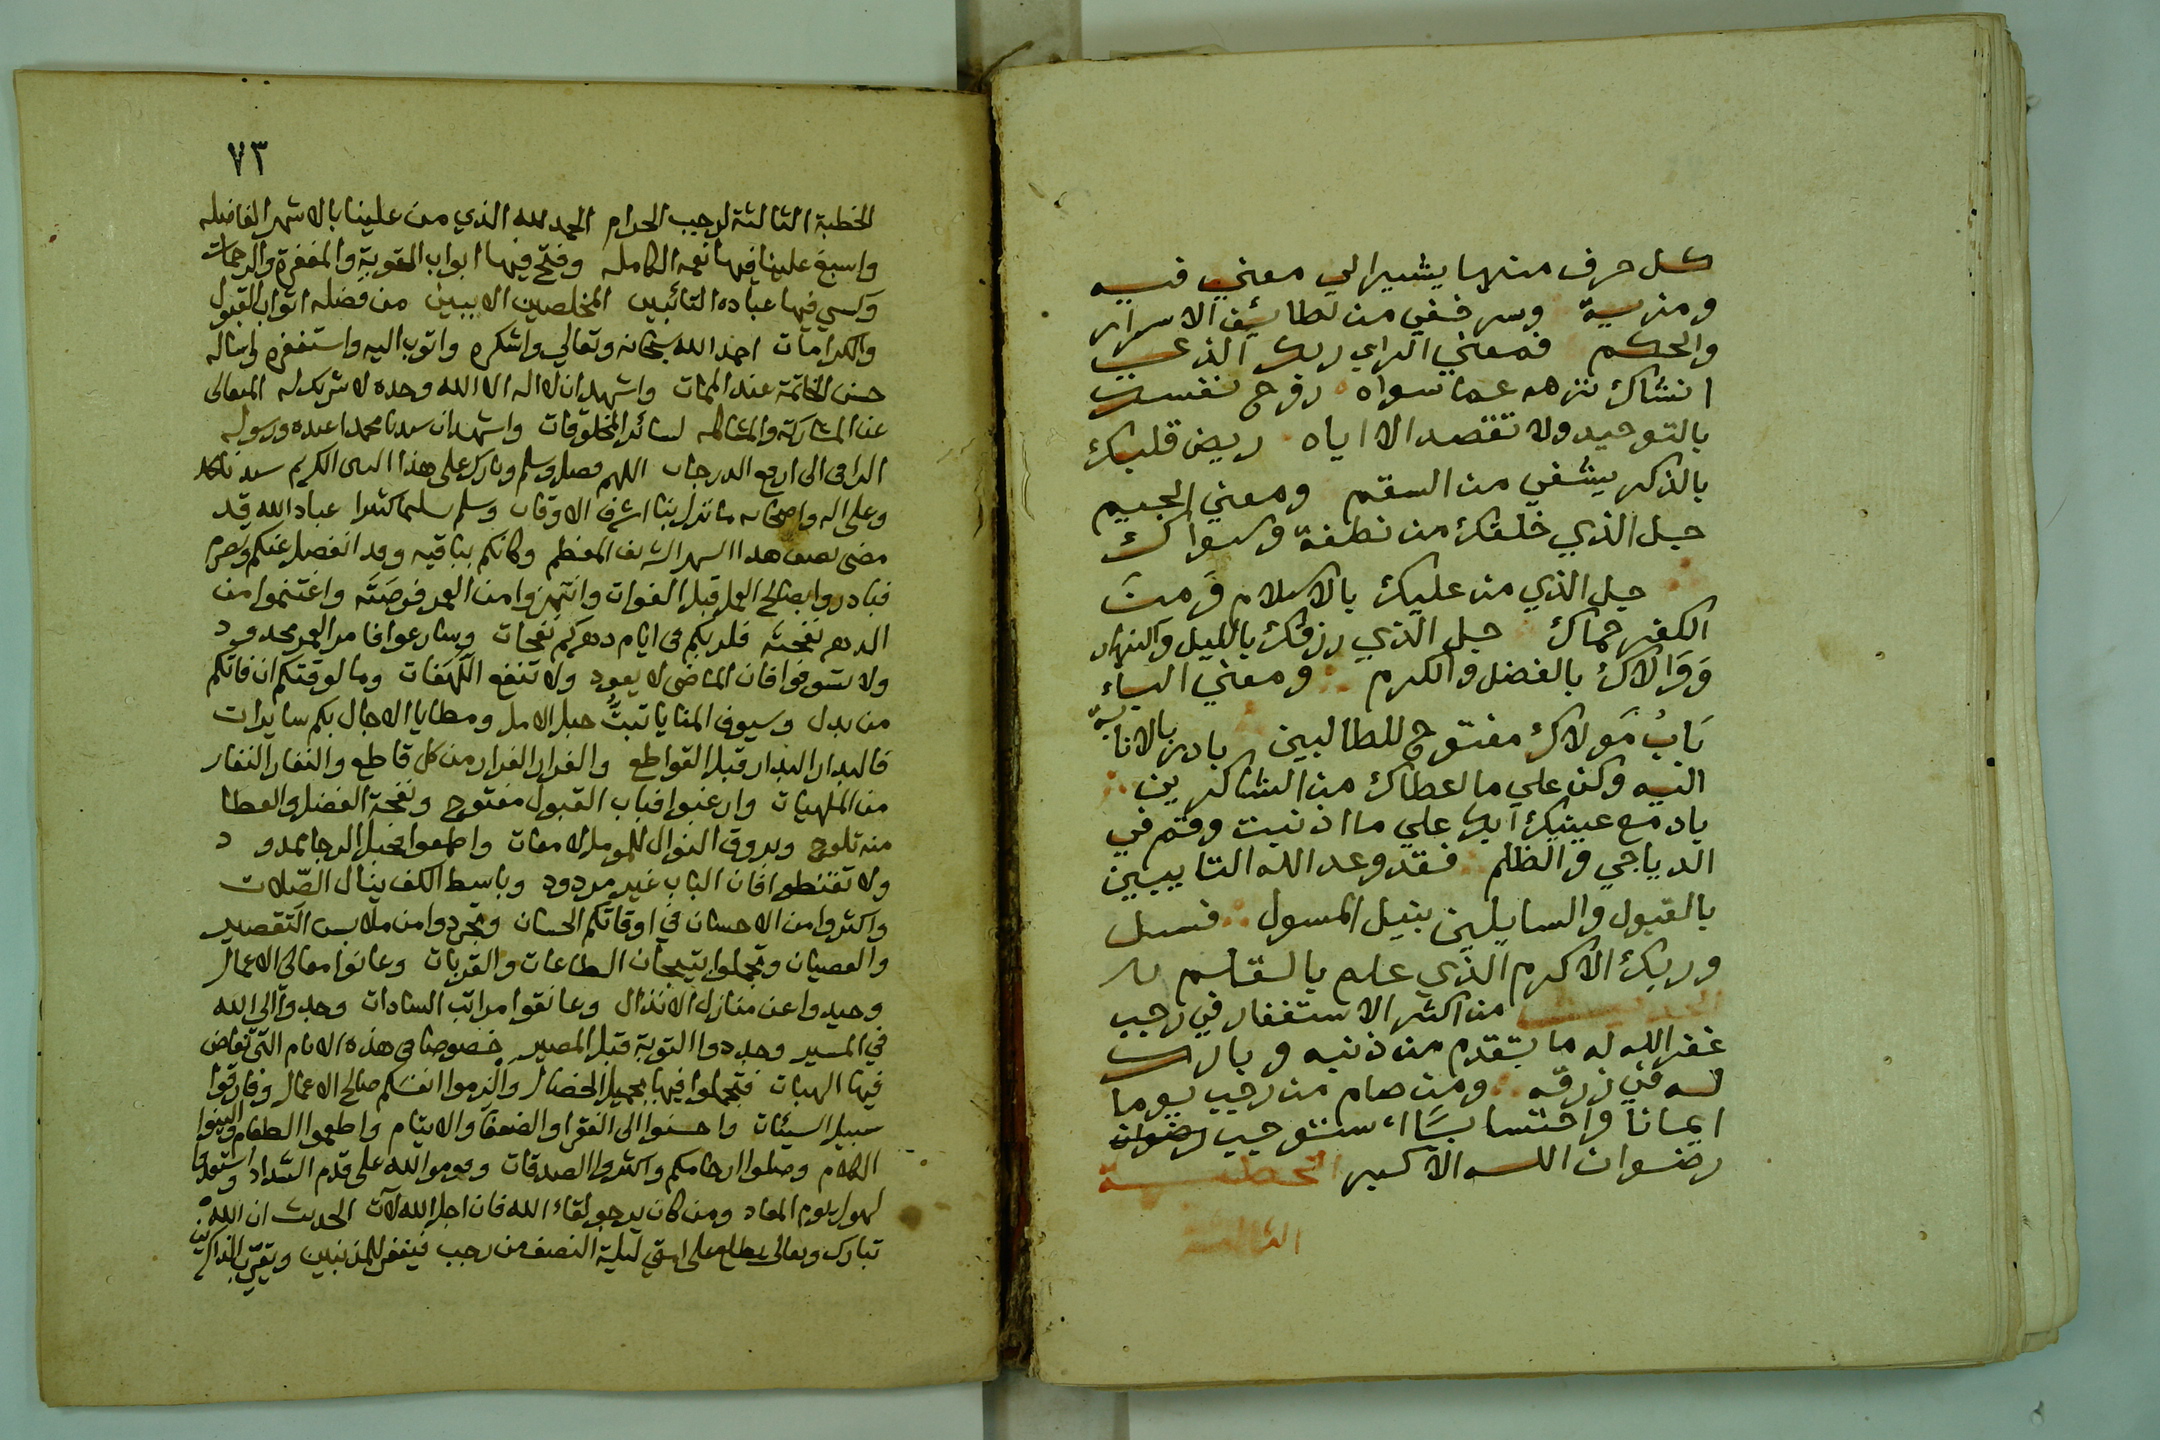 كل حرف منها يشير الي معني فيه
ومزية وسر خفي من لطائف الاسرار
والحكم فمعني الراي ربك الذي
انشاك نزهه عما سواه روح نفسك
بالتوحيد ولا تقصد الا اياه ريض قلبك
بالذكر يشفي من السقم ومعني الجيم
جل الذي خلقك من نطفة وسواك
جل الذي من عليك بالاسلام ومن
الكفر حماك جل الذي رزقك بالليل والنهار
ووالاك بالفضل والكرم ومعني الباء
باب مولاك مفتوح للطالبين بادر بالانابة
اليه وكن علي ما اعطاك من الشاكرين
يا دمع عينيك ابك علي ما اذنبت وقم في
الدياجي والظلم فقد وعد الله التايبين
بالقبول والسايلين بنيل المسول فسل
وربك الاكرم الذي علم بالقلم
الحديث من اكثر الاستغفار في رجب
غفر الله له ما تقدم من ذنبه وبارك
له في رزقه ومن صام من رجب يوما
ايمانا واحتسابا استوجب رضوان
رضوان الله الاكبر الخطبة
الثالثة
٧٣
الخطبة الثالثة لرجب الحرام الحمد لله الذي من علينا بالاشهر الفاضله
واسبغ علينا فيها نعمه الكامله وفتح فيها ابواب المقوبة والمغفرة والرحمات
وكسي فيها عباده التائبين المخلصين الاببين من فضله اثواب القبول
والكرامات احمد الله سبحانه وتعالي واشكره واتوب اليه واستغفره واساله
حسن الخاتمة عند الممات واشهد ان لا اله الا الله وحده لا شريك له المتعالي
عن المشاركة والمشاكله لسائر المخلوقات واشهد ان سيدنا محمدا عبده ورسوله
الراقى الى ارفع الدرجات اللهم فصل وسلم وبارك على هذا النبى الكريم سيدنا محمد
وعلى اله واصحابه ما نزل بنا اشرف الاوقات وسلم تسليما كثيرا عباد الله قد
مضى نصف هذا الشهر الشريف المعظم وكانكم بباقيه وقد انفصل عنكم وتصرم
فبادروا بصالح العمل قبل الفوات وانتهزوا من العمر فرصته واغتنموا من
الدهر نفحته فلربكم فى ايام دهركم نفحات وسارعوا فامر العمر محدود
ولا تسوفوا فان الماضى لا يعود ولا تنفع اللهفات وما لوقتكم ان فاتكم
من بدل وسيوف المنايا تبت حبل الامل ومطايا الاجال بكم سايرات
فالبدار البدار قبل القواطع والفرار الفرار من كل قاطع والنفار النفار
من الملهيات وارغبوا فباب القبول مفتوح ونفحة الفضل والعطا
منه تلوح وبروق النوال للمومل لامعات واطمعوا فحبل الرجا ممدود
ولا تقنطوا فان الباب غير مردود وباسط الكف ينال الصلات
واكثروا من الاحسان في اوقاتكم الحسان وتجردوا من ملابس التقصير
والعصيان وتجملوا بتيجان الطاعات والقربات وعانوا معالي الاعمال
وحيدوا عن منازل الانذال وعانقوا مراتب السادات وجدوا الى الله
في المسير وجددوا التوبة قبل المصير خصوصا فى هذه الايام التي تفاض
فيها الهبات فتجملوا فيها بجميل الخصال والزموا انفسكم صالح الاعمال وفارقوا
سبيل السيئات واحسنوا الى الفقرا والضعفا والايتام واطعموا الطعام والينوا
الكلام وصلوا ارحامكم واكثروا الصدقات وقوموا لله على قدم السداد واستعدوا
لهول يوم المعاد ومن كان يرجو لقاء الله فان اجل الله لآت الحديث ان الله
تبارك وتعالى يطلع على امتي ليلة النصف من رجب فيغفر للمذنبين ويقرب الذاكرين